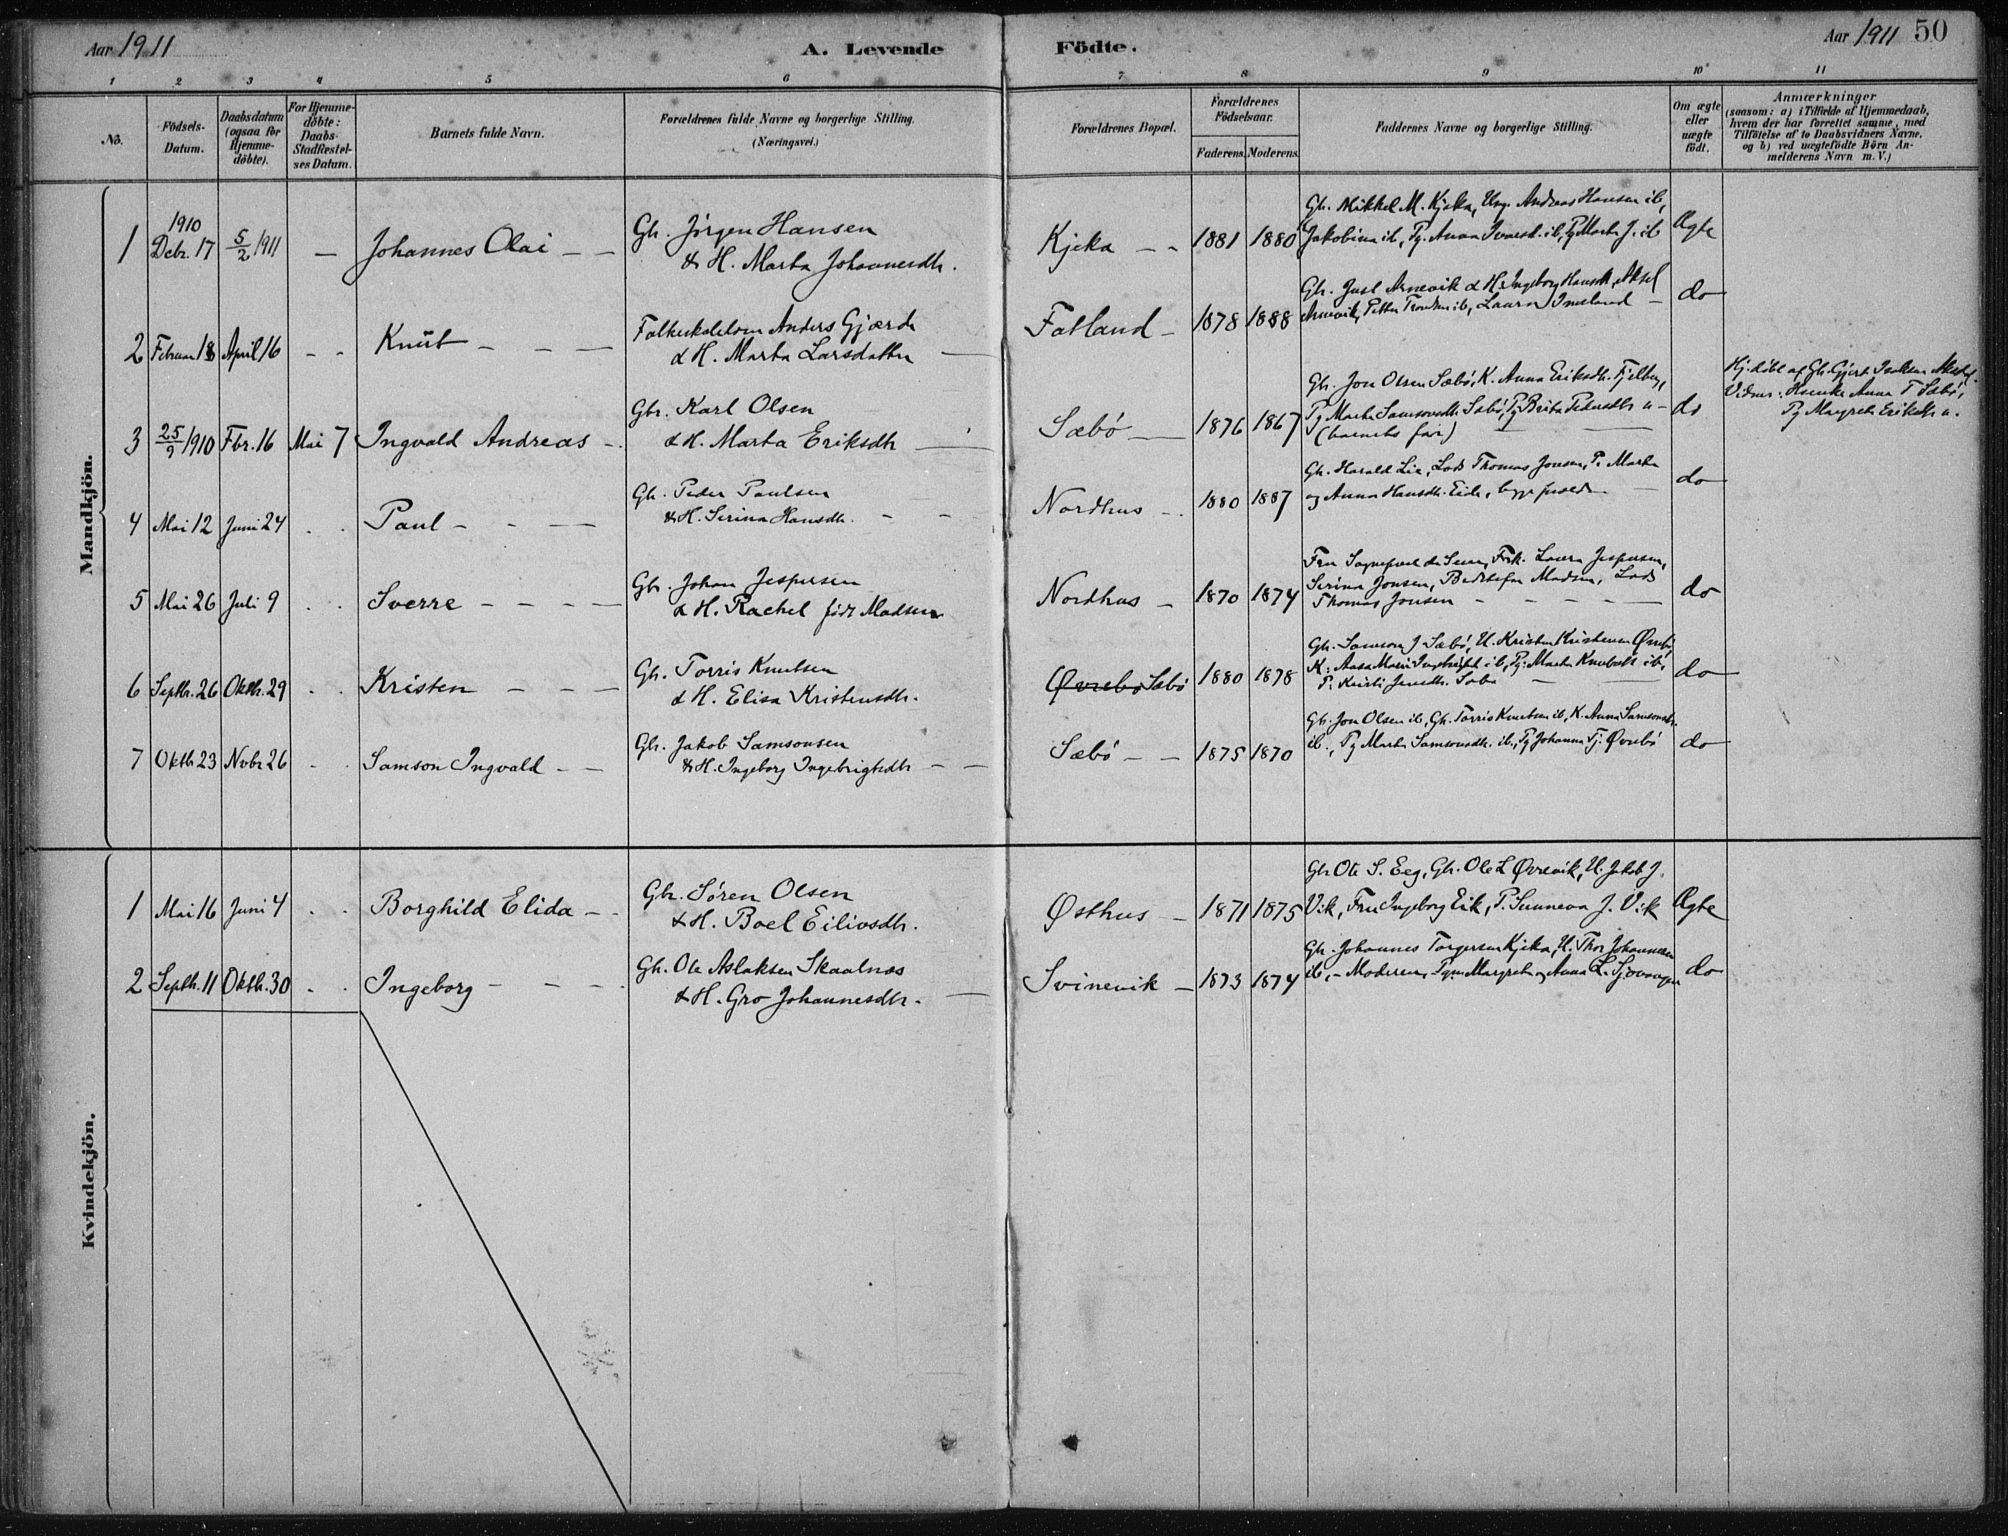 Aar 1911
A. Levende
Födte.
Aar 1911 50
1 2 3 4 5 6 7 8 9 10 11
No.
Födsels-Datum.
Daabsdatum (ogsaa for Hjemme-döbte).
For Hjemme-döbte: Daabs-Stadfæstel-ses Datum.
Barnets fulde Navn.
Forældrenes fulde Navne og borgerlige Stilling.
(Næringsvei.)
Forældrenes Bopæl.
Forældrenes Födselsaar.
Faderens. Moderens.
Faddernes Navne og borgerlige Stilling.
Om ægte eller uægte født.
Anmærkninger
(saasom: a) i Tilfælde af Hjemmedaab,
hvem der har forrettet samme, med
Tilföielse af to Daabsvidners Navne.
og b) ved uægtefödte Börn An-
melderens Navn m. V.)
Mandkjön.
1 1910 Debr. 17 5/2 1911 – Johannes Olai – –
Gbr. Jörgen Hansen
& H. Marta Johannesdtr.
Kjeka – – 1881 1880
Gbr. Mikkel M. Kjeka, Ung. Andreas Hansen ib,
Jakobina ib, Pg. Anna Ivarsd. ib, Pg Marta J. ib
Ægte
2 Februar 18 April 16 – – Knut – – –
Folkeskolelærer Anders Gjærde
& H. Marta Larsdatter
Fatland – 1878 1888
Gbr. Juel Arnevik & H. Ingeborg Hansdtr, Aksel
Arnevik, Petter ib, Laura Imeland –
do
3 25/9 1910 Fbr. 16 Mai 7 Ingvald Andreas –
Gbr. Karl Olsen
& H. Marta Eriksdtr
Sæbö – 1876 1867
Gbr. Jon Olsen Sæbö, K. Anna Eriksdtr. Fjelberg,
Pg Marta Samsonsdtr Sæbö, Pg Brita Pedersdtr u –
(barnets far)
do
Hj. döbt af Gbr. Gjert Isaksen
Vidner: Anna T Sæbö,
Pg Margreta Eriksdtr u.
4 Mai 12 Juni 24 Paul – – – –
Gbr. Peder Paulsen
& H. Serina Hansdtr. – –
Nordhus – 1880 1887
Gbr. Harald Lie, Lods Thomas Jonsen, P. Marta
og Anna Hansdtr. Eide, begge –
do
5 Mai 26 Juli 9 Sverre – – – –
Gbr. Johan Jespersen
& H. Rachel födt Madsen
Nordhus – 1870 1874
Fru Seue, Frk. Laura Jespersen,
Serina Jonsen, Bedstefar Madsen, Lods
Thomas Jonsen – – – –
do
6 Septbr. 26 Oktbr. 29 Kristen – – –
Gbr. Torris Knutsen
& H. Elisa Kristensdtr.
Øvrebö Sæbö 1880 1878
Gbr. Samson J Sæbö, U. Kristen Kristensen Øvrebö,
K. Anna Marie ib, Pg. Marta Knutsdtr ib,
P. Kristi Jensdtr. Sæbö –
do
7 Oktbr 23 Novbr 26 Samson Ingvald – –
Gbr. Jakob Samsonsen
& H. Ingeborg Ingebrigtsdtr – –
Sæbö – – 1875 1870
Gbr. Jon Olsen ib, Gbr. Torris Knutsen ib, K. Anna Samsonsdtr.
ib., Pg Marta Samsonsdtr. ib, Pg Johanna Tj. Øvrebö
do
Kvindekjön.
1 Mai 16 Juni 4 Borghild Elida – –
Gbr. Sören Olsen
& H. Boel Eilivsdtr.
Østhus – 1871 1875
Gbr Ole S. Eeg, Gbr. Ole L Øvrevik, U. Jakob J.
Vik, Fru Ingeborg Eik, P. Sunneva J. Vik
Ægte
2 Septbr. 11 Oktbr. 30 Ingeborg – – –
Gbr. Ole Aslaksen Skaalnæs
& H. Gro Johannesdtr. –
Svinevik – 1873 1874
Gbr. Johannes Torgersen Kjeka, U. Thor Johannesen
ib, – Moderen, Margreta og Anna L. Sjovangen
do